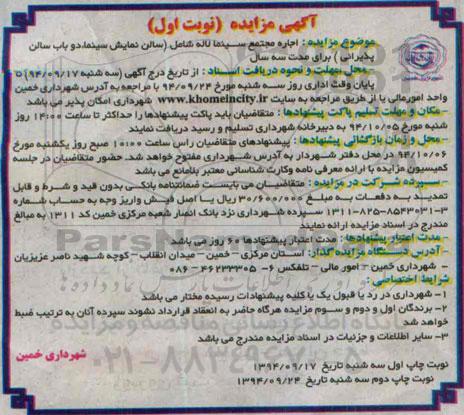 آگهی مزایده (نوبت اول)
موضوع مزایده : اجاره مجتمع سینما لاله شامل (سالن نمایش سینما،دو باب سالن
پذیرائی ) برای مدت سه سال
محل ،مهلت و نحوه دریافت اسناد : از تاریخ درج آگهی (سه شنبه ۹۴/۰۹/۱۷) تا
پایان وقت اداری روز سه شنبه مورخ ۹۴/۰۹/۲۴ با مراجعه به آدرس شهرداری خمین
واحد امورمالی یا از طریق مراجعه به سایت www.khomeincity.ir شهرداری امکان پذیر می باشد
-مکان و مهلت تسلیم پاکت پیشنهادها : متقاضیان باید پاکت پیشنهادها را حداکثر تا ساعت ۱۴:۰۰ روز
شنبه مورخ ۹۴/۱۰/۰۵ به دبیرخانه شهرداری تسلیم و رسید دریافت نمایند
-محل و زمان بازگشائی پیشنهادها : پیشنهادهای متقاضیان راس ساعت ۱۰:۰۰ صبح روز یکشنبه مورخ
۹۴/۱۰/۰۶ در محل دفتر شهردار به آدرس شهرداری مفتوح خواهد شد. حضور متقاضیان در جلسه
کمیسیون مزایده با ارائه معرفی نامه وکارت شناسائی معتبر بلامانع می باشد
-سپرده شرکت در مزایده : متقاضیان می بایست ضمانتنامه بانکی بدون قید و شرط و قابل
تمدید به دفعات به مبلغ ۳۰/۶۰۰/۰۰۰ ریال یا اصل فیش واریز وجه به حساب شماره
۱۳۱۱-۸۲۵-۸۵۴۳۰۳۱-۳ سپرده شهرداری نزد بانک انصار شعبه مرکزی خمین کد ۱۳۱۱ به مبالغ
مندرج در اسناد مزایده ارائه نمایند
-مدت اعتبار پیشنهادها : مدت اعتبار پیشنهادها ۶۰ روز می باشد
-آدرس دستگاه مزایده گذار: استان مرکزی - خمین - میدان انقلاب - کوچه شهید ناصر عزیزیان
- شهرداری خمین - امور مالی - تلفکس ۶- ۴۶۲۳۳۳۰۵ - ۰۸۶
شرایط اختصاصی:
۱- شهرداری در رد یا قبول یک یا کلیه پیشنهادات رسیده مختار می باشد
۲- برندگان اول و دوم و سوم مزایده هرگاه حاضر به انعقاد قرارداد نشوند سپرده آنان به ترتیب ضبط
خواهد شد
۳- سایر اطلاعات و جزئیات در اسناد مزایده مندرج می باشد
شهرداری خمین
نوبت چاپ اول سه شنبه تاریخ ۱۳۹۴/۰۹/۱۷
نوبت چاپ دوم سه شنبه تاریخ ۱۳۹۴/۰۹/۲۴
۰۲۱-۸۸۳۴۹۶۷۰-۵